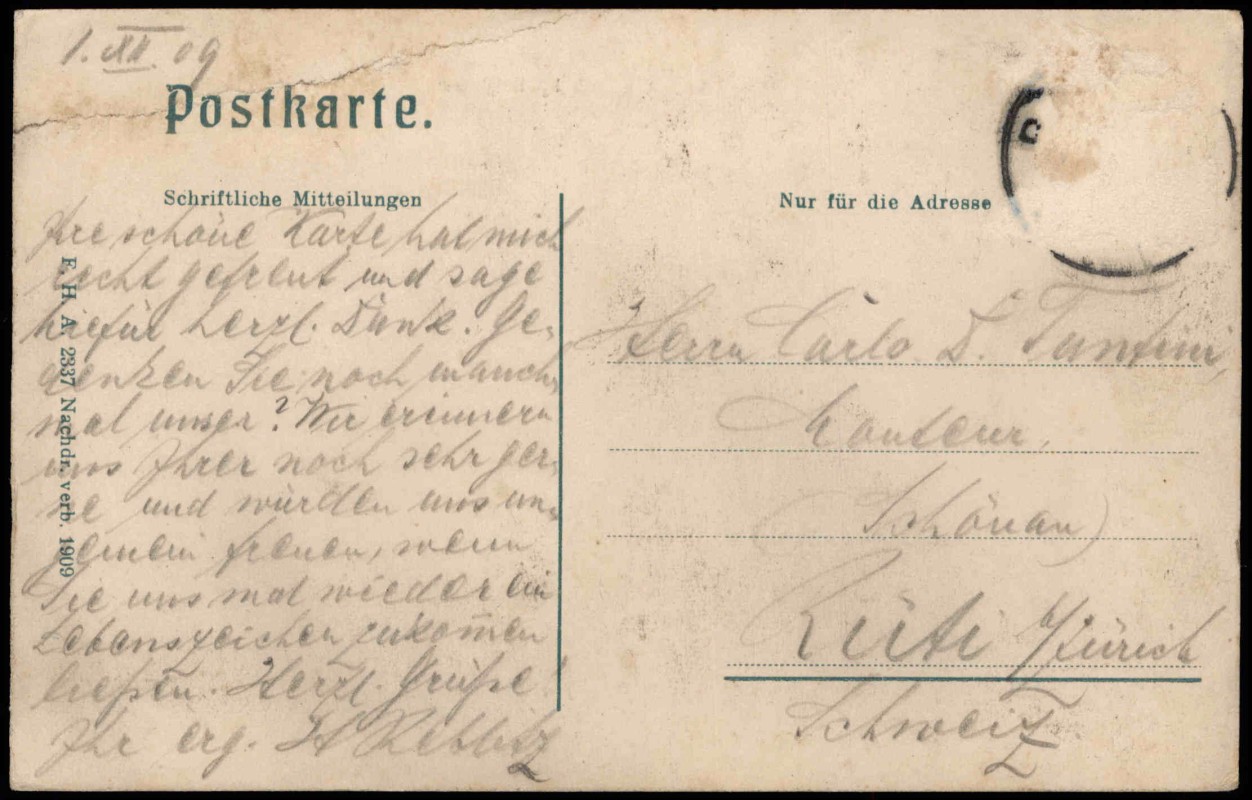 1. XII. 09
Postkarte.
Schriftliche Mitteilungen
Ihre schöne Karte hat mich
recht gefreut und sage
hiefür herzl. Dank. Ge-
denken Sie noch manch-
mal unser? Wir erinnern
uns Ihrer noch sehr ger-
ne und würden uns un-
gemein freuen, wenn
Sie uns mal wieder ein
Lebenszeichen zukom̄en
ließen. Herzl. Grüße!
Ihr erg.
F. H. A. 2337 Nachdr. verb. 1909
Nur für die Adresse
Herrn Carlo D.
Monteur,
Schönau
Rüti /Zürich
Schweiz